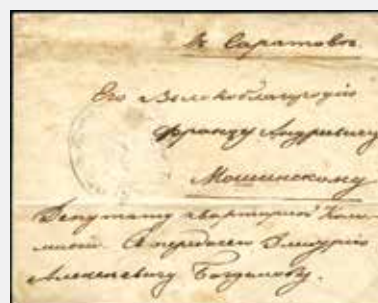 в Саратовъ.
Его Высокоблагородію
Францу Андреевичу
Мошинскому
Депутату квартирной Ком-
миссіи. А передаси Дмитрію
Алексеевичу Богданову.